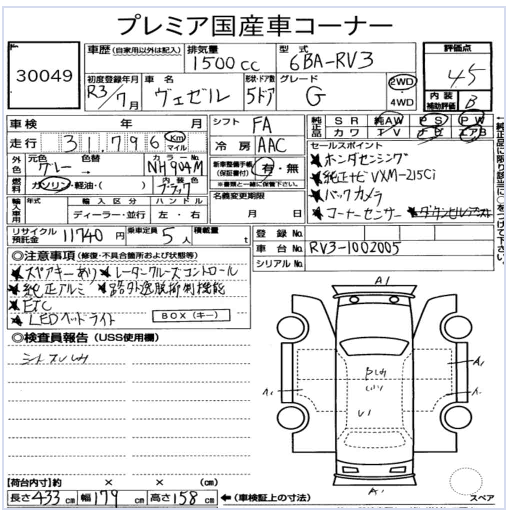 プレミア国産車コーナー
30049
車歴 (自家用以外は記入)
排気量 1500cc
型式 6BA-RV3
評価点 4.5
初度登録年月 R3/7月
車名 ヴェゼル
形状・ドア数 5ドア
グレード G
2WD・4WD
内装補助評価 B
車検 年 月
走行 31,796 Km マイル
シフト FA
冷房 AAC
純正品 SR 純AW PS PW
カワ TV エアB
外色 元色 グレー → 色替
カラーNo. NH904M
燃料 ガソリン・軽油・( )
内装色 ブラック
新車整備手帳(保証書付) 有・無
※書類と一緒に保管下さい
セールスポイント
★ホンダセンシング
★純正ナビ VXM-215Ci
★バックカメラ
★コーナーセンサー
輸入車用 年式 輸入区分 ディーラー・並行 ハンドル 左・右
名義変更期限 月 日
リサイクル預託金 11740 円
乗車定員 5人
積載量 t
登録No.
車台No. RV3-1002005
シリアルNo.
◎注意事項 (修復・不具合箇所および状態等)
★スペアキーあり ★レーダークルーズコントロール
★純正アルミ ★路外逸脱抑制機能
★ETC
★LEDヘッドライト
BOX(キー)
◎検査員報告 (USS使用欄)
↑純正品に限り該当に○をつけて下さい。
A1
A1
A1
U1
スペア
【荷台内寸】約 × × (cm)
長さ 433 cm 幅 179 cm 高さ 158 cm ←(車検証上の寸法)